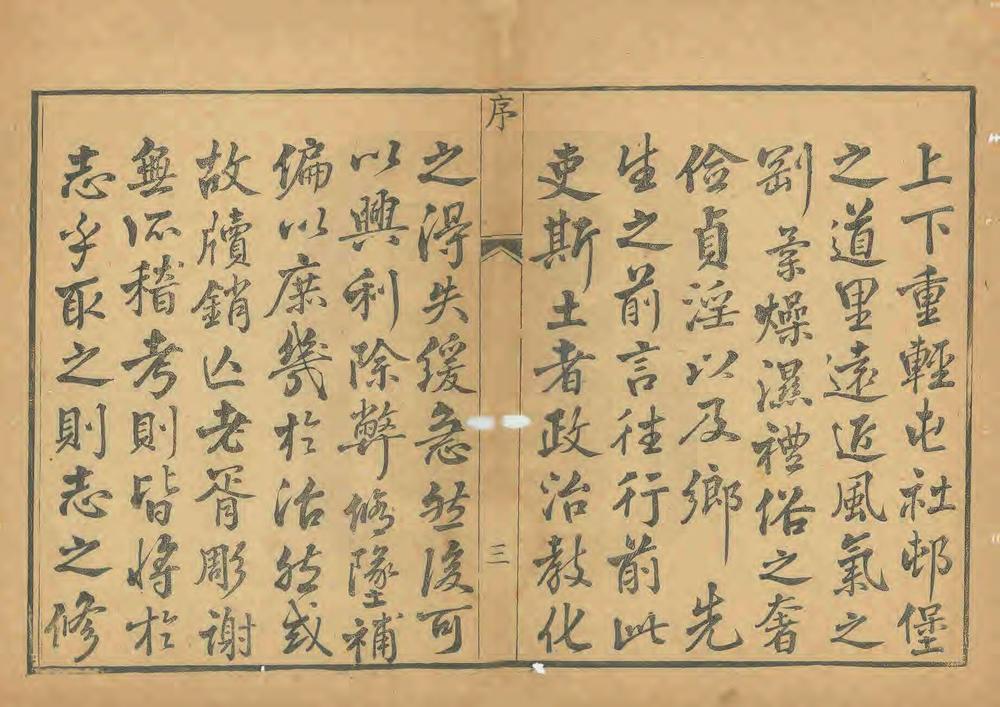 上下重輕屯社邨堡
之道里遠近風氣之
剛柔燥濕禮俗之奢
儉貞淫以及鄉先
生之前言往行前此
吏斯土者政治教化
序
三
之得失緩急然後可
以興利除弊修墜補
偏以庶幾於治然或
故牘銷亾老胥彫謝
無所稽考則皆將於
志乎取之則志之修